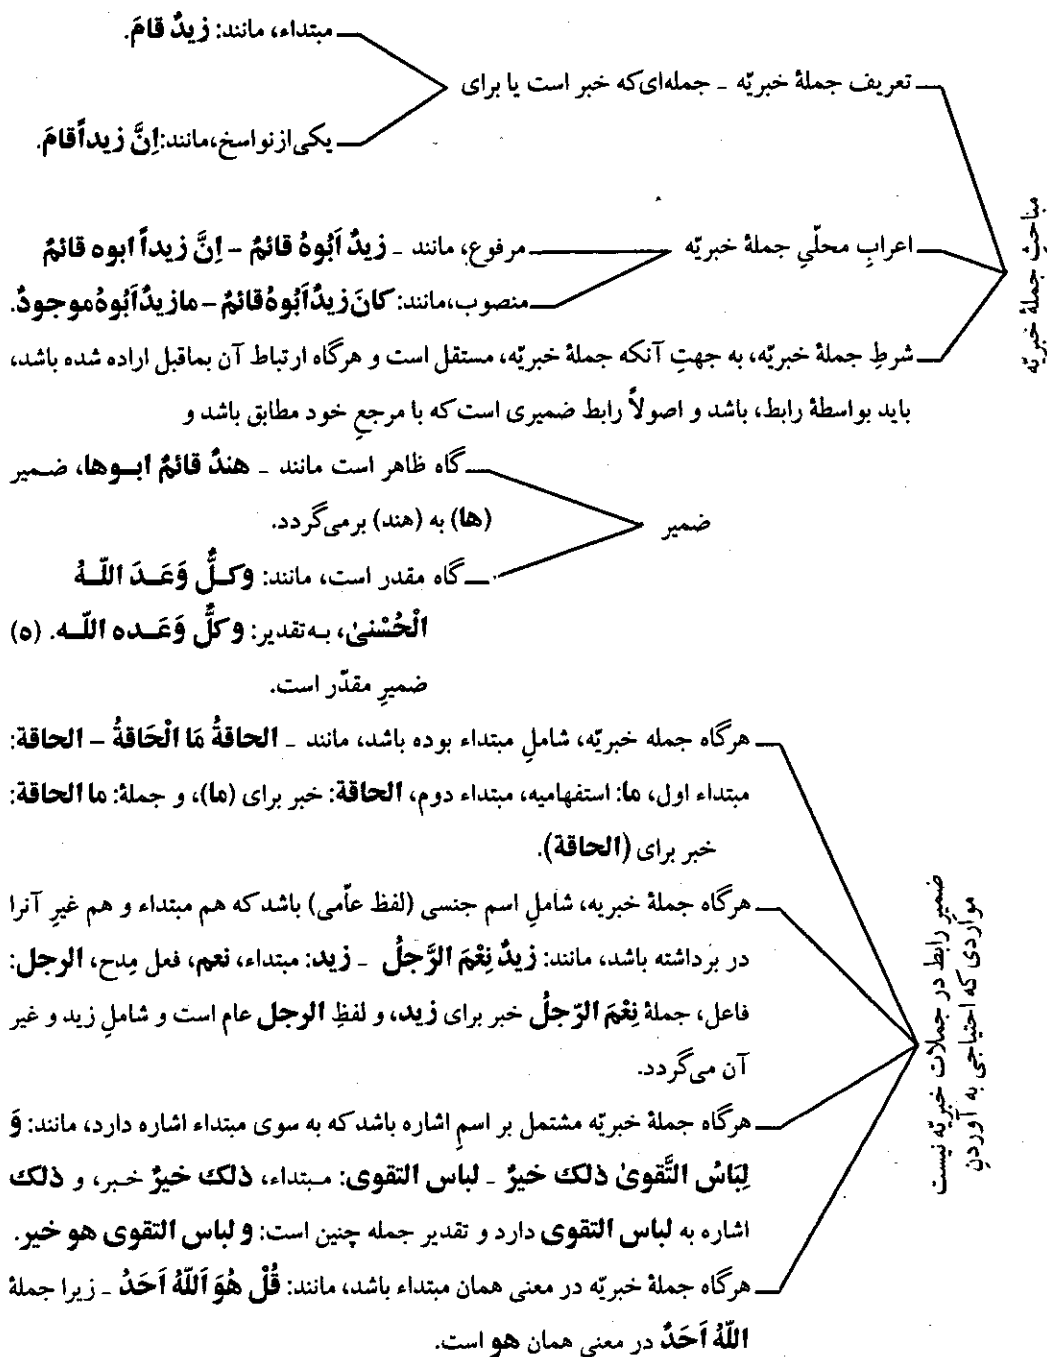 مبتداء، مانند: زیدٌ قامَ.
تعریف جملهٔ خبریّه - جمله‌ای‌که خبر است یا برای
یکی از نواسخ، مانند: اِنَّ زیداً قامَ.
مباحثِ جملهٔ خبریّه
اعرابِ محلّیِ جملهٔ خبریّه
مرفوع، مانند - زیدٌ اَبُوهُ قائمٌ - اِنَّ زیداً ابوه قائمٌ
منصوب، مانند: کانَ زیدٌ اَبُوهُ قائمٌ - ما زیدٌ اَبُوهُ موجودٌ.
شرطِ جملهٔ خبریّه، به جهتِ آنکه جملهٔ خبریّه، مستقل است و هرگاه ارتباط آن بماقبل اراده شده باشد،
باید بواسطهٔ رابط، باشد و اصولاً رابط ضمیری است که با مرجعِ خود مطابق باشد و
ضمیر
گاه ظاهر است مانند - هندٌ قائمٌ ابوها، ضمیر
(ها) به (هند) برمی‌گردد.
گاه مقدر است، مانند: وکلٌّ وَعَدَ اللّهُ
الْحُسْنیٰ، به‌تقدیر: وکلٌّ وَعَده اللّه. (ه)
ضمیرِ مقدّر است.
هرگاه جمله خبریّه، شاملِ مبتداء بوده باشد، مانند - الحاقةُ مَا الْحَاقةُ - الحاقة:
مبتداء اول، ما: استفهامیه، مبتداء دوم، الحاقة: خبر برای (ما)، و جملهٔ: ما الحاقة:
خبر برای (الحاقة).
هرگاه جملهٔ خبریه، شاملِ اسم جنسی (لفظ عاّمی) باشد که هم مبتداء و هم غیرِ آنرا
در برداشته باشد، مانند: زیدٌ نِعْمَ الرَّجلُ - زید: مبتداء، نعم، فعل مِدح، الرجل:
فاعل، جملهٔ نِعْمَ الرّجلُ خبر برای زید، و لفظِ الرجل عام است و شاملِ زید و غیر
آن می‌گردد.
مواردی که احتیاجی به آوردنِ
ضمیرِ رابط در جملات خبریّه نیست
هرگاه جملهٔ خبریّه مشتمل بر اسمِ اشاره باشد که به سوی مبتداء اشاره دارد، مانند: وَ
لِبَاسُ التَّقویٰ ذلک خیرٌ - لباس التقوی: مبتداء، ذلک خیرٌ خبر، و ذلک
اشاره به لباس التقوی دارد و تقدیر جمله چنین است: و لباس التقوی هو خیر.
هرگاه جملهٔ خبریّه در معنی همان مبتداء باشد، مانند: قُلْ هُوَ اَللّهُ اَحَدُ - زیرا جملهٔ
اللّهُ اَحَدٌ در معنی همان هو است.